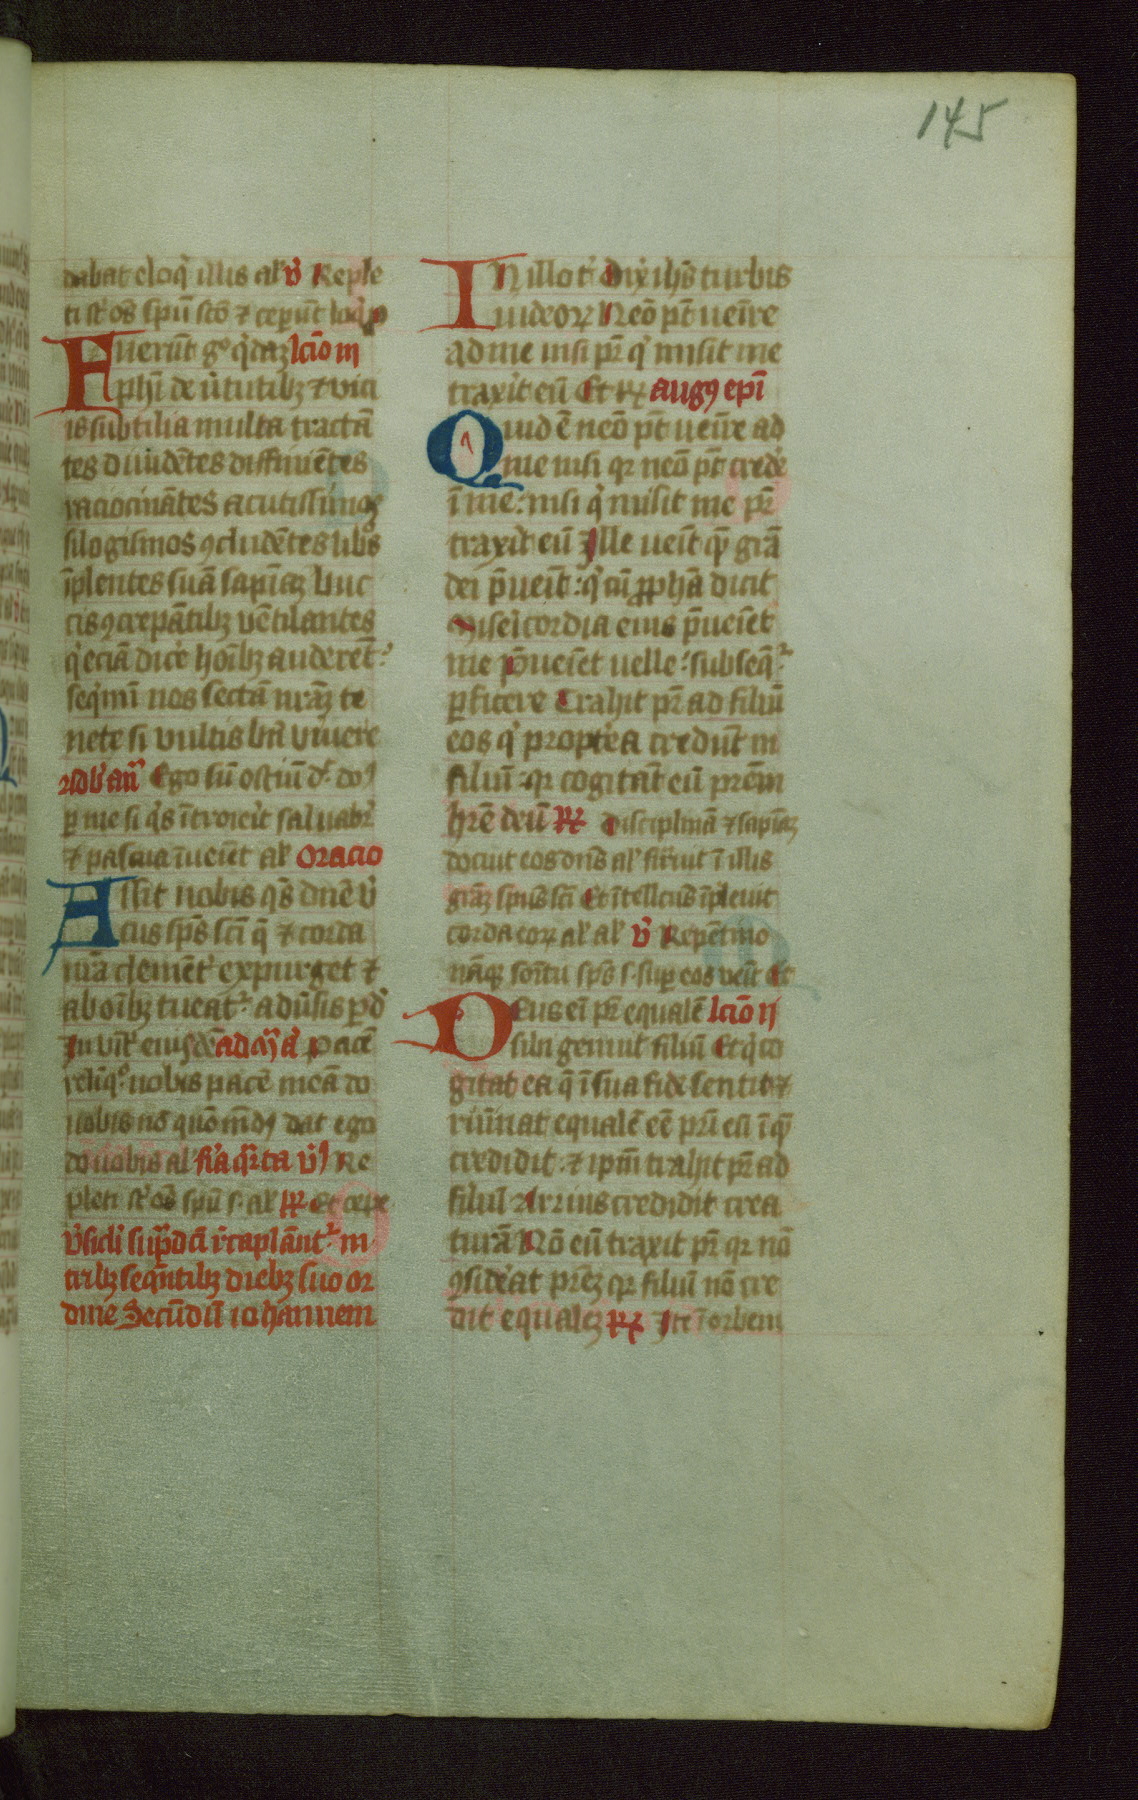 145
dabat eloqͥ illis al' v̄ Reple
ti sͭ oēs spū scō ⁊ ceperūt loqͥ
Fuerūt gͦ qͥdaꝫ lcīo iii
phī de ùtutibꝫ ⁊ vici
is subtilia multa tractā
tes diuidētes diffiniētes
raciocinātes acutissimos
silogismos ꝯcludētes libros
īplentes suā sapīaꝫ buc
cis ꝯcrepātibꝫ vētilantes
qͥ eciā dicē hoībꝫ auderēt:
seqͥmī nos sectā nrāꝫ te
nete si vultis btē viuere
Ego sū ostiū dꝭ dos
p me si qͥs ītroierit saluabr̄
⁊ pascua īueīet al' Oracio
Assit nobis qs̄ dnē v̄
tus spūs scī q̄ ⁊ corda
nrā clemēt expurget ⁊
ab oībꝫ tueatͬ aduersis p d
In vnīt eiusdē ad mͣ aͣ Pacē
relinqͦ nobis pacē meā do
uobis nō quō mūdꝰ dat ego
do uobis al' fīa qͣrta vs Re
pleti sͭ oēs spū s. al' ꝶ Et cepe
v̄sicli supͣdcī
tribꝫ seqntibꝫ diebꝫ suo or
dine Secūdū iohannem
IN illo t̄ dix̄ ihs̄ turbis
iudeoꝝ Neō pt̄ ueīre
ad me nisi pr̄ qͥ misit me
traxit eū Et ꝶ augꝰ epī
Quid ē neō pt̄ ueīre ad
me nisi qꝛ neō pt̄ crede
ī me: nisi qͥ misit me pr̄
traxit eū Ille ueīt qē gͣā
dei p̄ueīt: qͥ cū ꝓphā dicit
Misericordia eius p̄ueīet
me p̄ueīet uelle: subseqͬ
pficere Trahit pr̄ ad filiū
eos qͥ propterea credūt in
filiū qꝛ cogitāt eū prēm
hrē deū ꝶ Disciplinā ⁊ sapīaꝫ
docuit eos dns̄ al' firmīt ī illis
gͣāꝫ spūs scī Et ītellctū īpleuit
corda eoꝝ al' al' v̄ Repētino
nāqꝫ sonitu spūs s. super eos venit Et
Deus eī pr̄ equalē lcīo ii
sibi genuit filiū Et qͥ co
gitat ea q̄ ī sua fide sentit ⁊
rūīnat equalē eē prī eū ī quē
credidit: ⁊ ip̄m trahit pr̄ ad
filiū Arrius credidit crea
turā Nō eū traxit pr̄ qꝛ nō
ꝯsiderat prēꝫ qꝛ filiū nō cre
dit equaleꝫ ꝶ Ite ī orbem